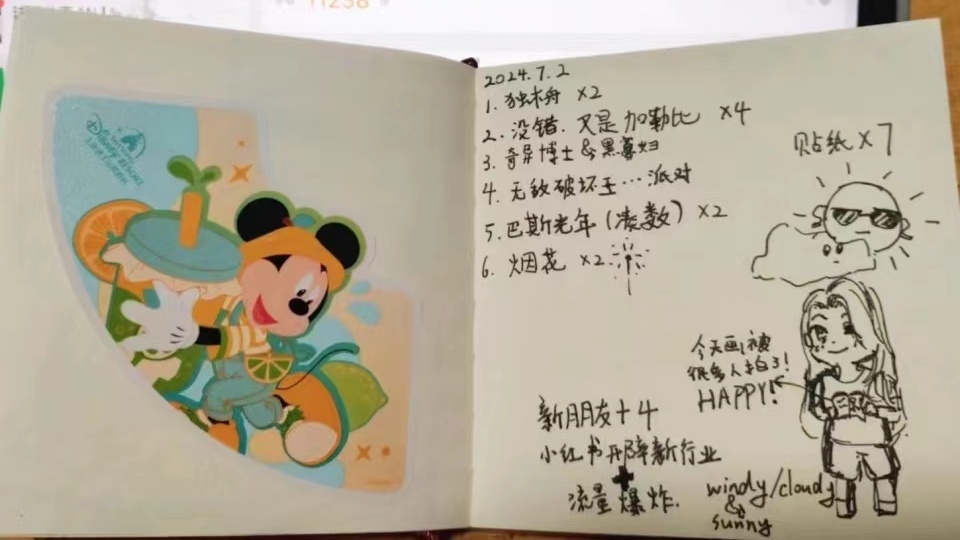 11238
2024.7.2
1. 独木舟 ×2
2. 没错. 又是加勒比 ×4
3. 奇异博士&黑寡妇
4. 无敌破坏王…派对
5. 巴斯光年(凑数) ×2
6. 烟花 ×2
贴纸×7
今天画被
很多人拍了!
HAPPY!
新朋友+4
小红书开辟新行业
+
流量爆炸.
windy/cloudy
&
sunny